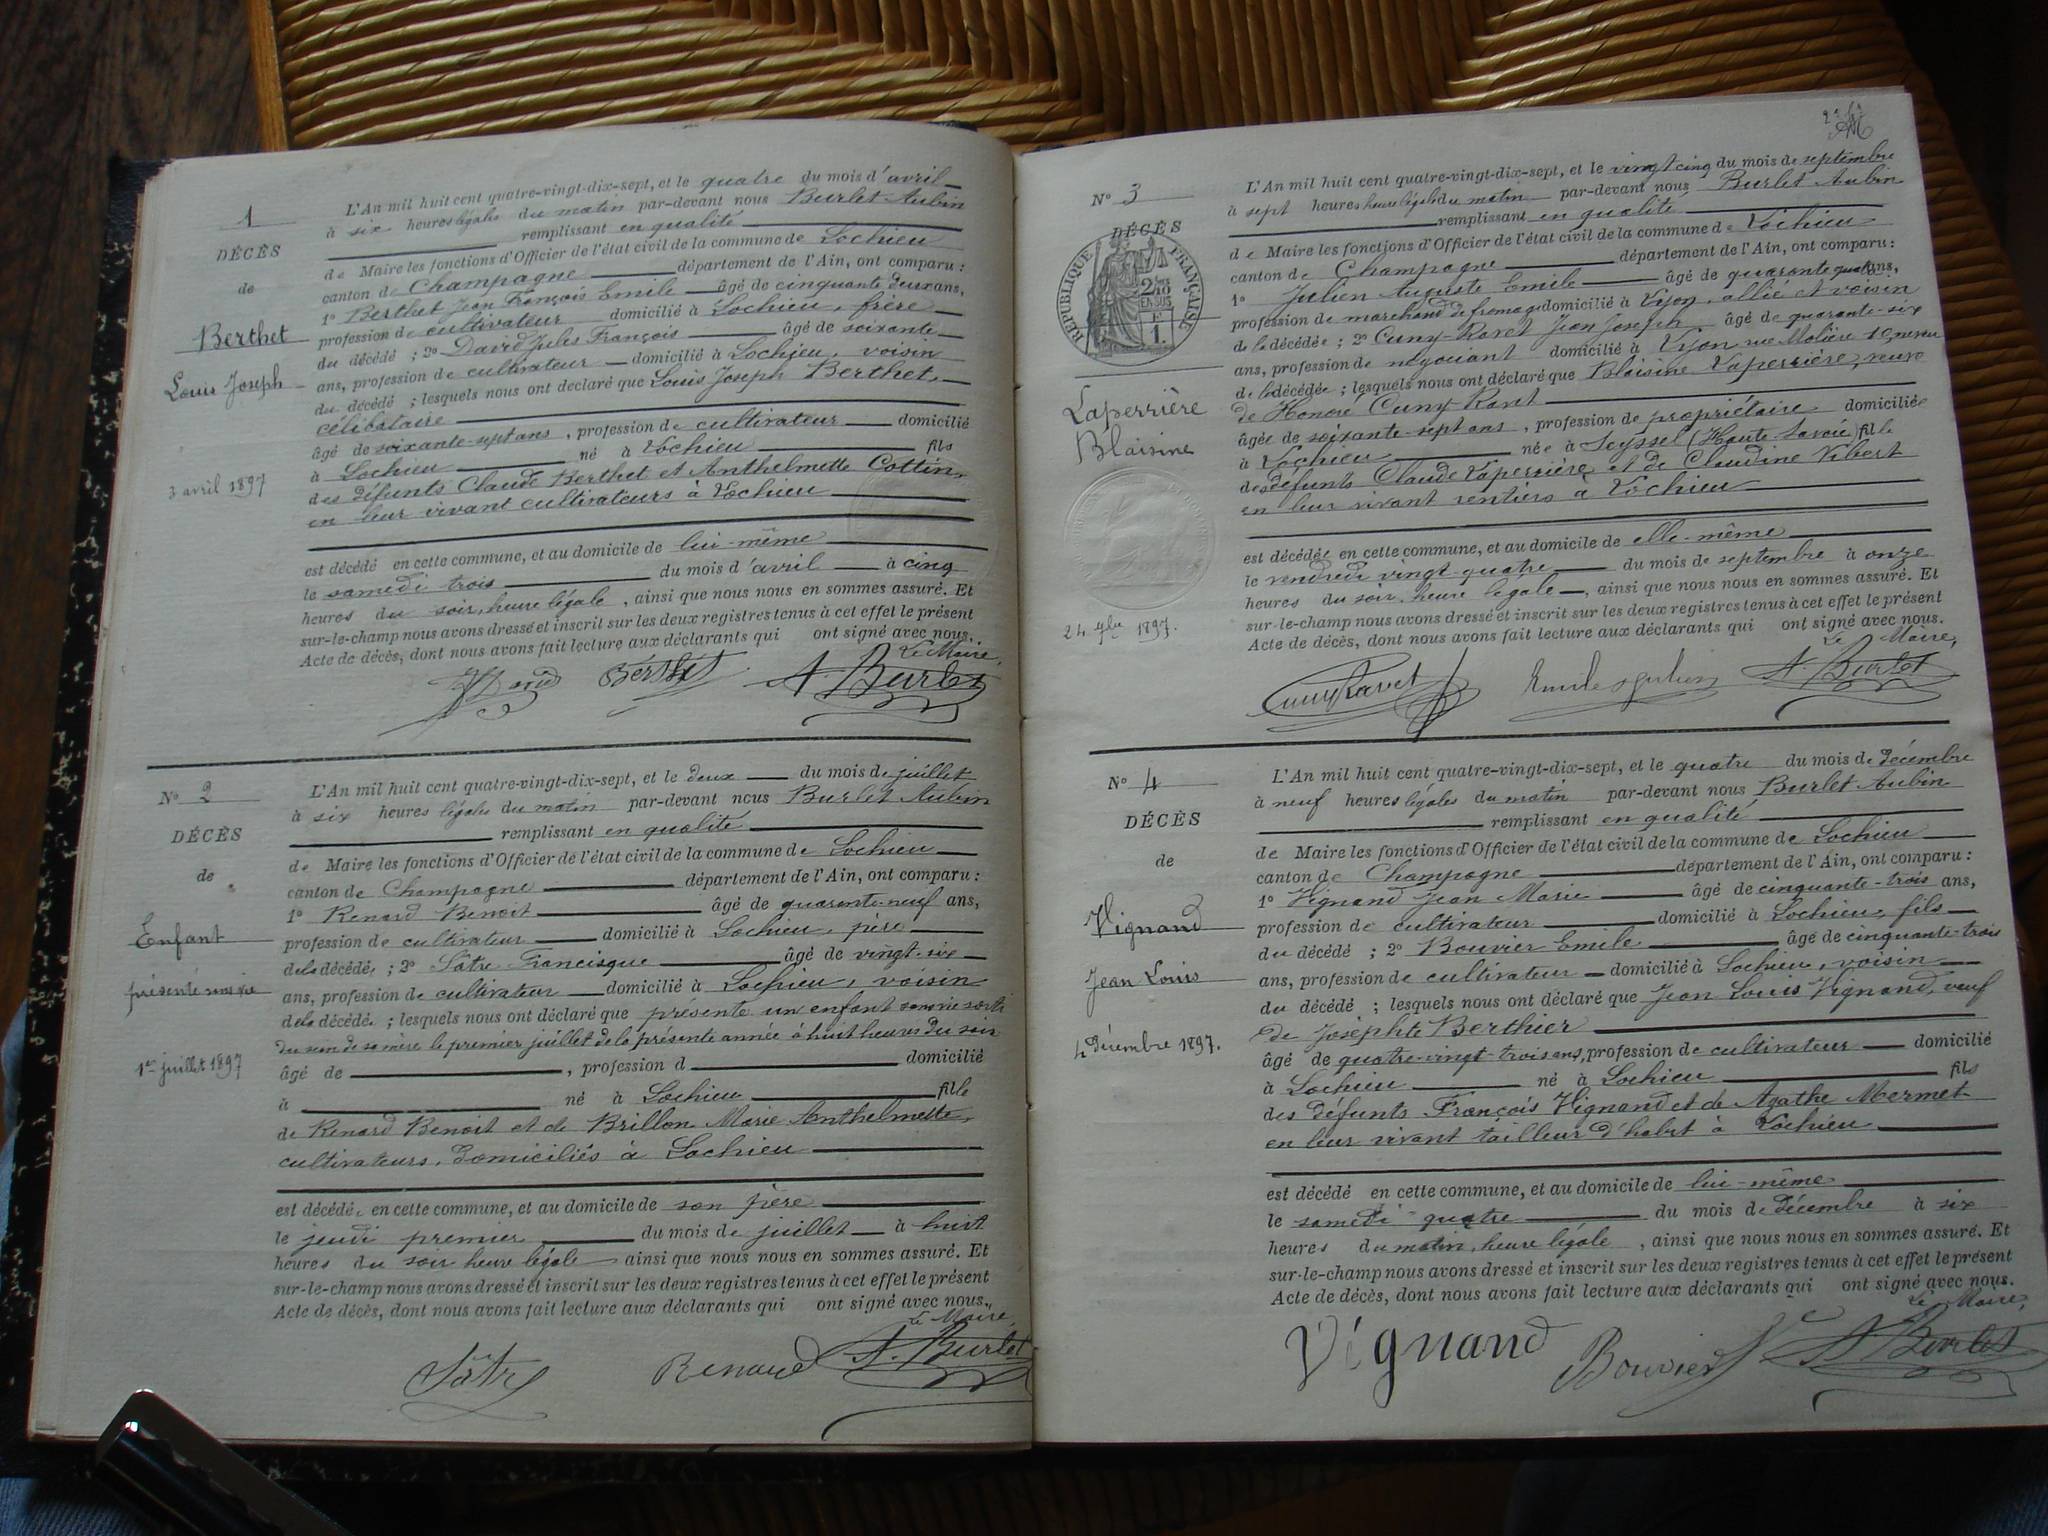 1
DÉCÈS
de
Berthet
Louis Joseph
3 avril 1897
L'An mil huit cent quatre-vingt-dix-sept, et le quatre du mois d'avril
à six heures légales du matin par-devant nous Burlet Aubin
remplissant en qualité
de Maire les fonctions d'Officier de l'état civil de la commune de Lochieu
canton de Champagne département de l'Ain, ont comparu :
1º Berthet Jean François Emile âgé de cinquante deux ans,
profession de cultivateur domicilié à Lochieu, frère
du décédé ; 2º David Jules François âgé de soixante
ans, profession de cultivateur domicilié à Lochieu, voisin
du décédé ; lesquels nous ont déclaré que Louis Joseph Berthet,
célibataire
âgé de soixante-sept ans, profession de cultivateur domicilié
à Lochieu né à Lochieu fils
des défunts Claude Berthet et Anthelmette Cottin,
en leur vivant cultivateurs à Lochieu
est décédé en cette commune, et au domicile de lui-même
le samedi trois du mois d'avril à cinq
heures du soir, heure légale, ainsi que nous nous en sommes assuré. Et
sur-le-champ nous avons dressé et inscrit sur les deux registres tenus à cet effet le présent
Acte de décès, dont nous avons fait lecture aux déclarants qui ont signé avec nous.
Le Maire,
David Berthet A. Burlet
Nº 2
DÉCÈS
de
Enfant
présenté sans vie
1er juillet 1897
L'An mil huit cent quatre-vingt-dix-sept, et le deux du mois de juillet
à six heures légales du matin par-devant nous Burlet Aubin
remplissant en qualité
de Maire les fonctions d'Officier de l'état civil de la commune de Lochieu
canton de Champagne département de l'Ain, ont comparu :
1º Renard Benoit âgé de quarante-neuf ans,
profession de cultivateur domicilié à Lochieu, père
de la décédée ; 2º Sâtre Francisque âgé de vingt-six
ans, profession de cultivateur domicilié à Lochieu, voisin
de la décédée ; lesquels nous ont déclaré que présente un enfant sans vie sorti
du sein de sa mère le premier juillet de la présente année à huit heures du soir
âgé de , profession d domicilié
à né à Lochieu fille
de Renard Benoit et de Brillon Marie Anthelmette,
cultivateurs, domiciliés à Lochieu
est décédée en cette commune, et au domicile de son père
le jeudi premier du mois de juillet à huit
heures du soir heure légale ainsi que nous nous en sommes assuré. Et
sur-le-champ nous avons dressé et inscrit sur les deux registres tenus à cet effet le présent
Acte de décès, dont nous avons fait lecture aux déclarants qui ont signé avec nous.
Le Maire,
Sâtre Renard A. Burlet
Nº 3
DÉCÈS
RÉPUBLIQUE FRANÇAISE
Laperrière
Blaisine
24 7bre 1897.
L'An mil huit cent quatre-vingt-dix-sept, et le vingt cinq du mois de septembre
à sept heures heure légale du matin par-devant nous Burlet Aubin
remplissant en qualité
de Maire les fonctions d'Officier de l'état civil de la commune de Lochieu
canton de Champagne département de l'Ain, ont comparu :
1º Julien Auguste Emile âgé de quarante quatre ans,
profession de marchand de fromage domicilié à Lyon, allié et voisin
de la décédée ; 2º Cuny-Ravet Jean Joseph âgé de quarante-six
ans, profession de négociant domicilié à Lyon rue Molière 10 neveu
de la décédée ; lesquels nous ont déclaré que Blaisine Laperrière, veuve
de Honoré Cuny Ravet
âgée de soixante-sept ans, profession de propriétaire domiciliée
à Lochieu née à Seyssel (Haute-Savoie) fille
des défunts Claude Laperrière et de Claudine Vibert
en leur vivant rentiers à Lochieu
est décédée en cette commune, et au domicile de elle-même
le vendredi vingt-quatre du mois de septembre à onze
heures du soir, heure légale, ainsi que nous nous en sommes assuré. Et
sur-le-champ nous avons dressé et inscrit sur les deux registres tenus à cet effet le présent
Acte de décès, dont nous avons fait lecture aux déclarants qui ont signé avec nous.
Le Maire,
Cuny Ravet Emile Julien A. Burlet
Nº 4
DÉCÈS
de
Vignand
Jean Louis
4 décembre 1897.
L'An mil huit cent quatre-vingt-dix-sept, et le quatre du mois de décembre
à neuf heures légales du matin par-devant nous Burlet Aubin
remplissant en qualité
de Maire les fonctions d'Officier de l'état civil de la commune de Lochieu
canton de Champagne département de l'Ain, ont comparu :
1º Vignand Jean Marie âgé de cinquante-trois ans,
profession de cultivateur domicilié à Lochieu, fils
du décédé ; 2º Bouvier Emile âgé de cinquante-trois
ans, profession de cultivateur domicilié à Lochieu, voisin
du décédé ; lesquels nous ont déclaré que Jean Louis Vignand, veuf
de Josephte Berthier
âgé de quatre-vingt-trois ans, profession de cultivateur domicilié
à Lochieu né à Lochieu fils
des défunts François Vignand et de Agathe Mermet
en leur vivant tailleur d'habit à Lochieu
est décédé en cette commune, et au domicile de lui-même
le samedi quatre du mois de décembre à six
heures du matin, heure légale, ainsi que nous nous en sommes assuré. Et
sur-le-champ nous avons dressé et inscrit sur les deux registres tenus à cet effet le présent
Acte de décès, dont nous avons fait lecture aux déclarants qui ont signé avec nous.
Le Maire,
Vignand Bouvier A. Burlet